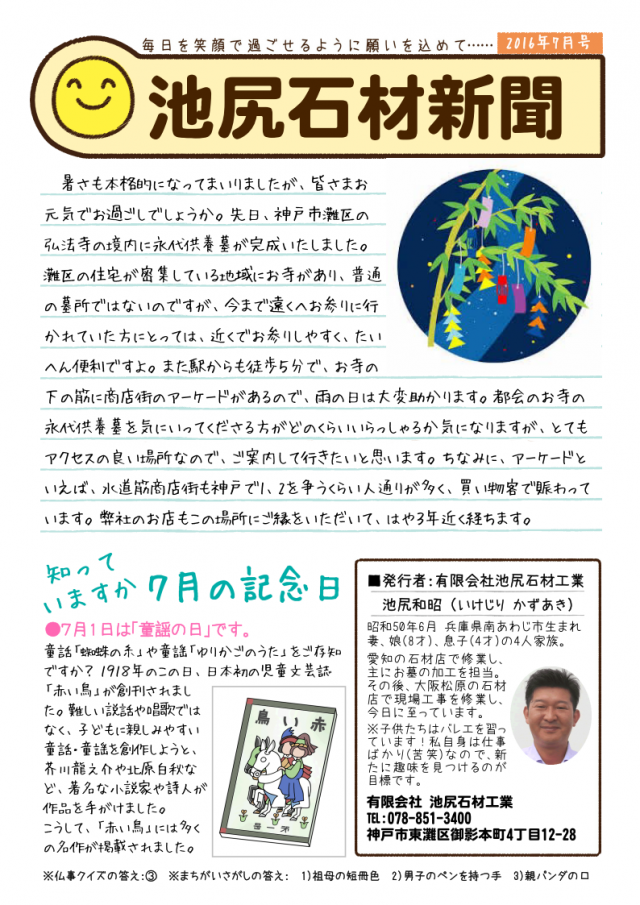 毎日を笑顔で過ごせるように願いを込めて……
2016年7月号
池尻石材新聞
暑さも本格的になってまいりましたが、皆さまお
元気でお過ごしでしょうか。先日、神戸市灘区の
弘法寺の境内に永代供養墓が完成いたしました。
灘区の住宅が密集している地域にお寺があり、普通
の墓所ではないのですが、今まで遠くへお参りに行
かれていた方にとっては、近くでお参りしやすく、たい
へん便利ですよ。また駅からも徒歩5分で、お寺の
下の筋に商店街のアーケードがあるので、雨の日は大変助かります。都会のお寺の
永代供養墓を気にいってくださる方がどのくらいいらっしゃるか気になりますが、とても
アクセスの良い場所なので、ご案内して行きたいと思います。ちなみに、アーケードと
いえば、水道筋商店街も神戸で1、2を争うくらい人通りが多く、買い物客で賑わって
います。弊社のお店もこの場所にご縁をいただいて、はや3年近く経ちます。
知って
いますか 7月の記念日
●7月1日は「童謡の日」です。
童話「蜘蛛の糸」や童謡「ゆりかごのうた」をご存知
ですか？1918年のこの日、日本初の児童文芸誌
「赤い鳥」が創刊されまし
た。難しい説話や唱歌では
なく、子どもに親しみやすい
童話・童謡を創作しようと、
芥川龍之介や北原白秋な
ど、著名な小説家や詩人が
作品を手がけました。
こうして、「赤い鳥」には多く
の名作が掲載されました。
鳥い赤
号一第
■発行者:有限会社池尻石材工業
池尻和昭（いけじり かずあき）
昭和50年6月 兵庫県南あわじ市生まれ
妻、娘(8才)、息子(4才)の4人家族。
愛知の石材店で修業し、
主にお墓の加工を担当。
その後、大阪松原の石材
店で現場工事を修業し、
今日に至っています。
※子供たちはバレエを習っ
ています！私自身は仕事
ばかり(苦笑)なので、新
たに趣味を見つけるのが
目標です。
有限会社 池尻石材工業
TEL:078-851-3400
神戸市東灘区御影本町4丁目12-28
※仏事クイズの答え:③ ※まちがいさがしの答え: 1)祖母の短冊色 2)男子のペンを持つ手 3)親パンダの口